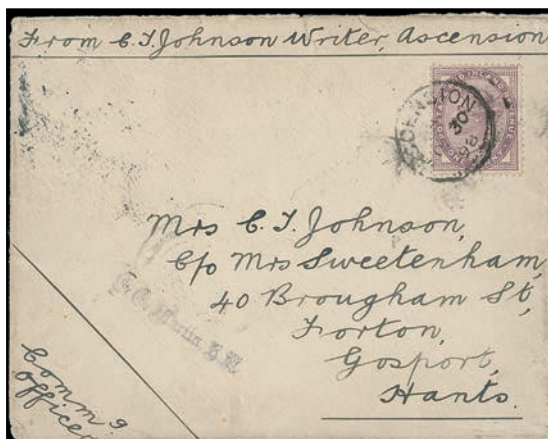 From C. T. Johnson Writer, Ascension
ASCENSION
30
98
Mrs C. T. Johnson,
C/o Mrs Sweetenham,
40 Brougham St,
Forton,
Gosport,
Hants.
Commg
Officer